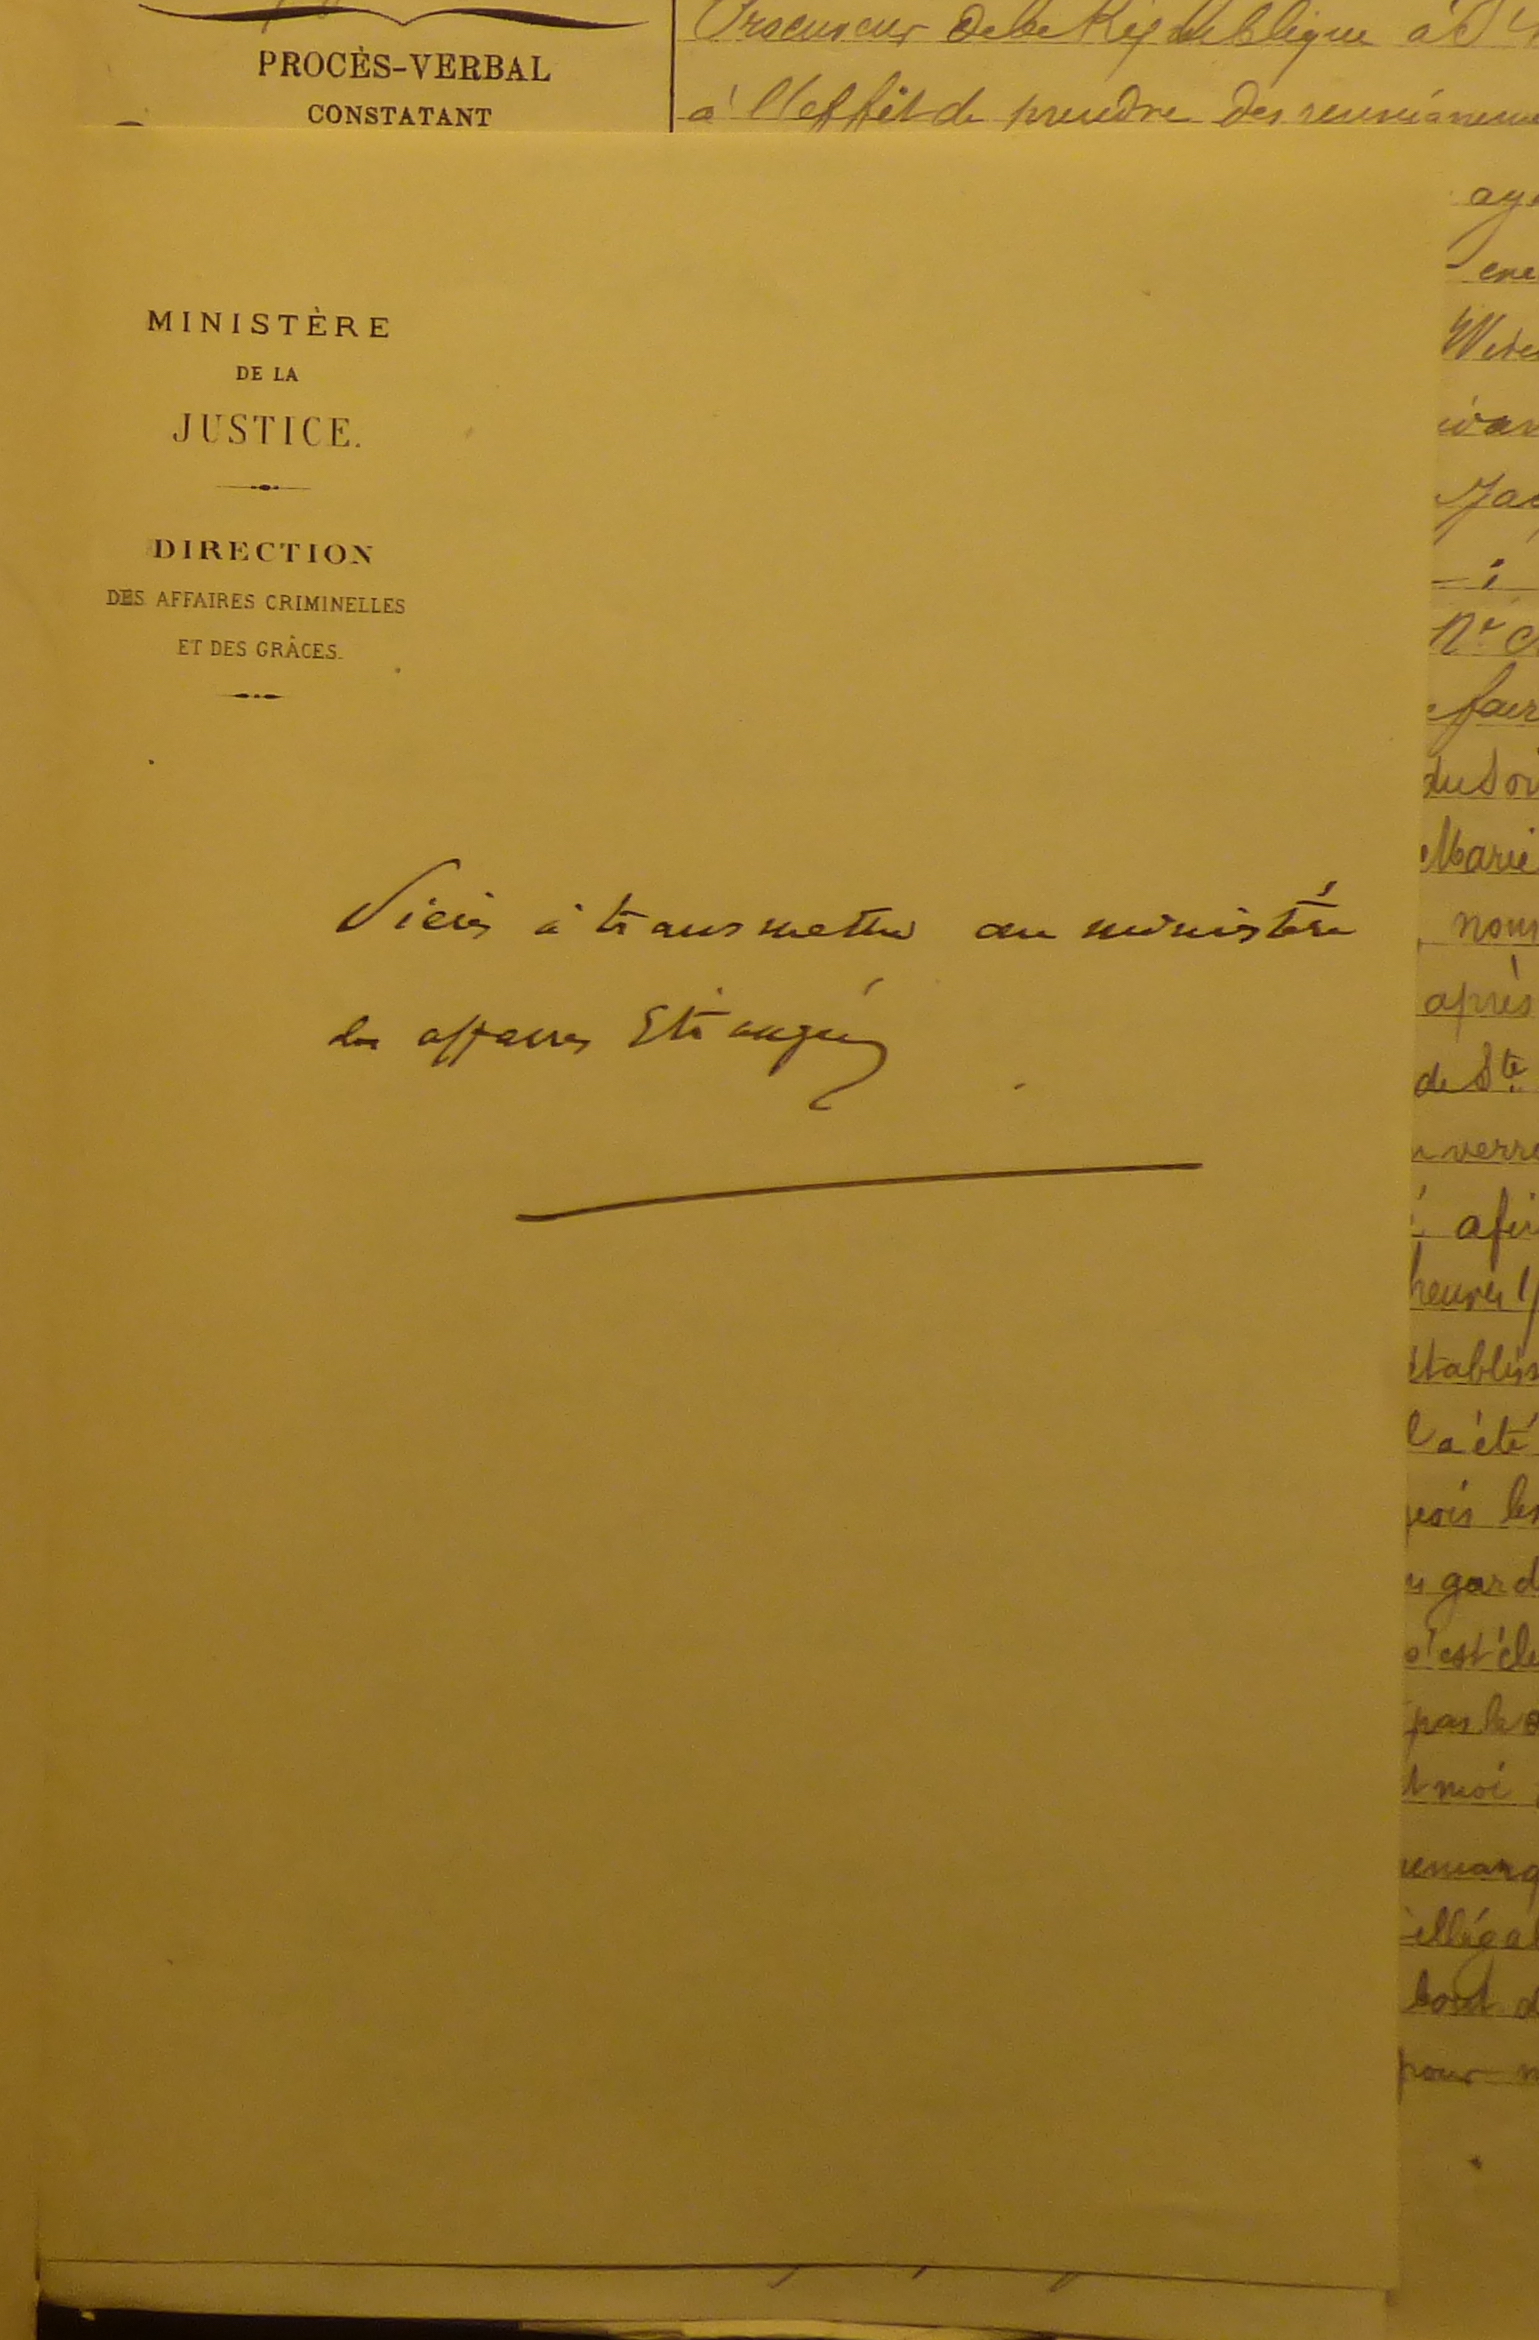 PROCÈS-VERBAL
CONSTATANT
Procureur de la République à S
à l'effet de prendre des
MINISTÈRE
DE LA
JUSTICE.
DIRECTION
DES AFFAIRES CRIMINELLES
ET DES GRÂCES.
Pièces à transmettre au ministère
des affaires Etrangères
Marie
nous
après
de Ste
verre
afin
heures
établis
l a été
les
gard
s'est éle
pas le
t moi
remarq
illégal
bout d
pour